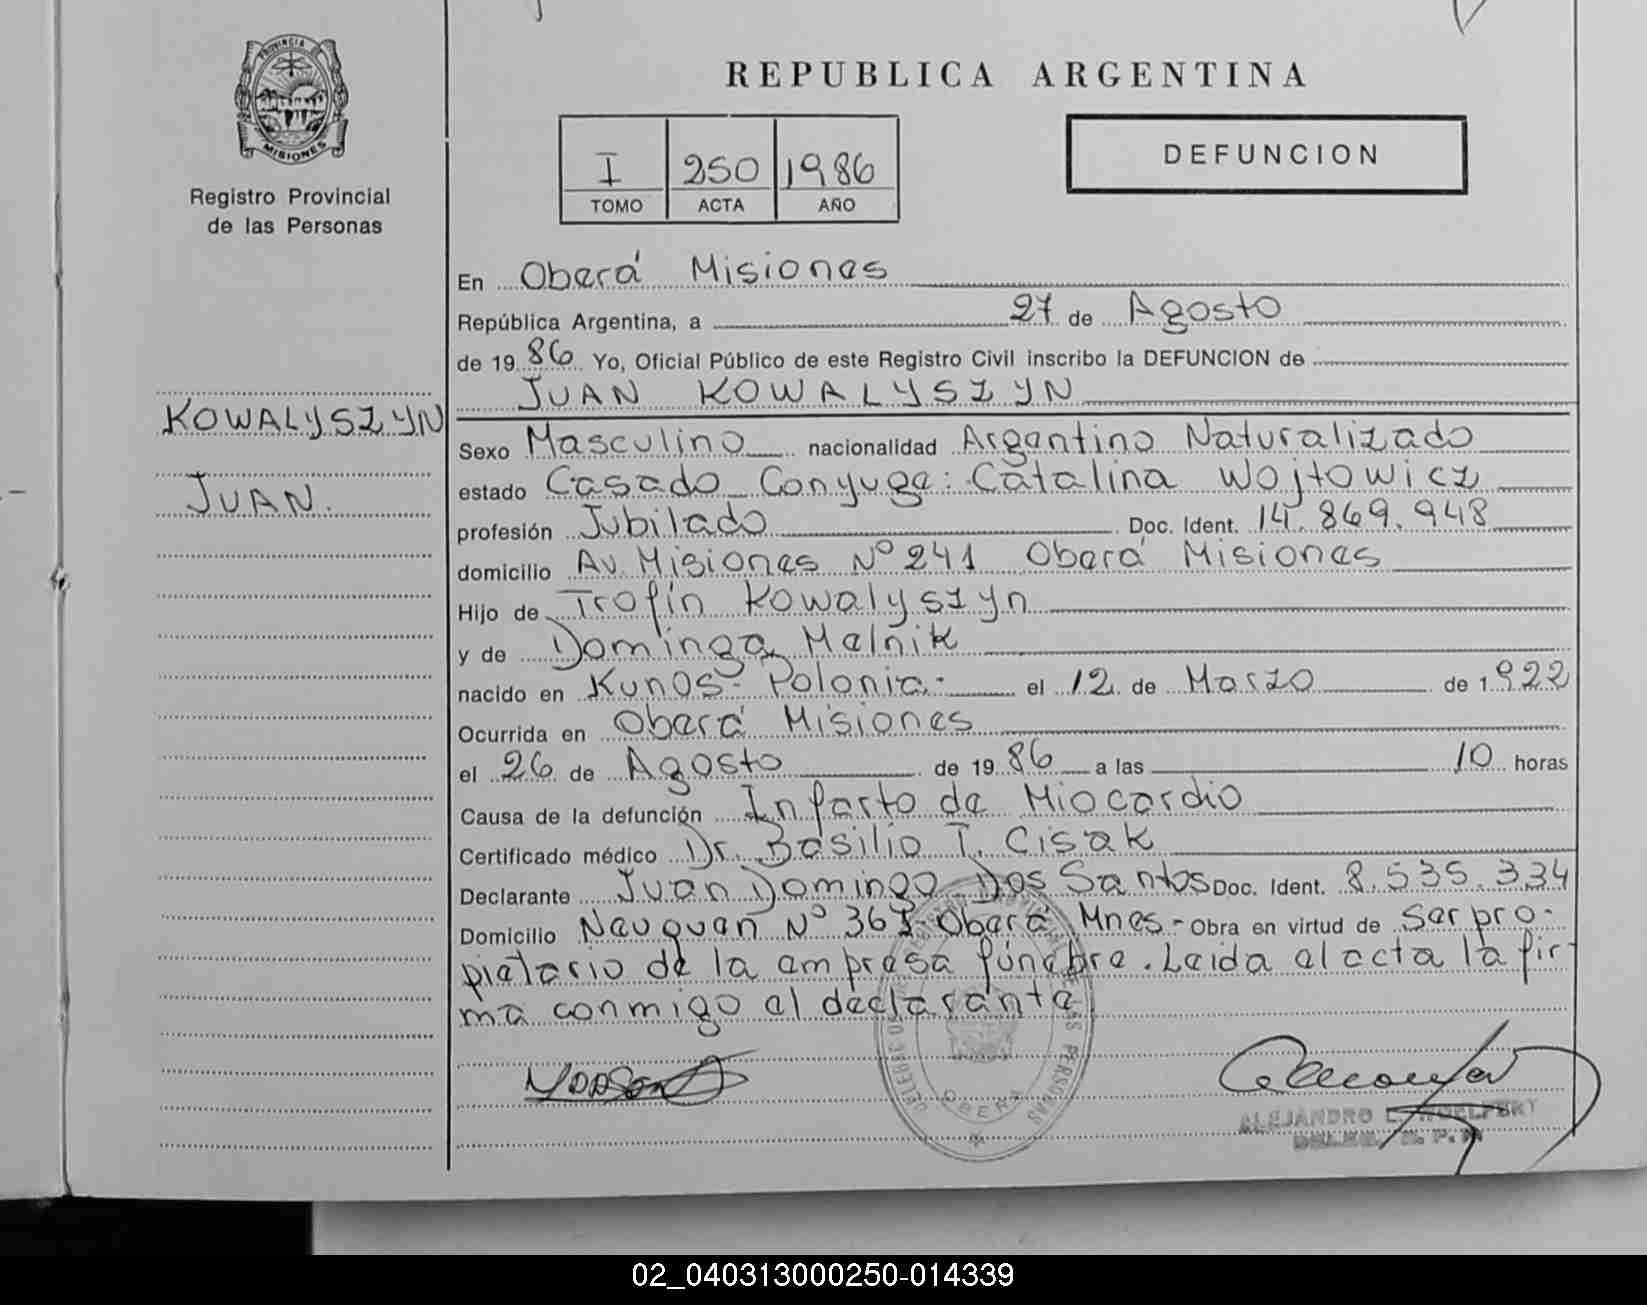 PROVINCIA DE
MISIONES
Registro Provincial
de las Personas
KOWALYSZYN
JUAN.
REPUBLICA ARGENTINA
I 250 1986
TOMO ACTA AÑO
DEFUNCION
En Oberá Misiones
República Argentina, a 27 de Agosto
de 19 86 Yo, Oficial Público de este Registro Civil inscribo la DEFUNCION de
JUAN KOWALYSZYN
Sexo Masculino nacionalidad Argentino Naturalizado
estado Casado Conyuge: Catalina Wojtowicz
profesión Jubilado Doc. Ident. 14.869.948
domicilio Av. Misiones Nº 241 Oberá Misiones
Hijo de Trofin Kowalyszyn
y de Dominga Melnik
nacido en Kunos- Polonia.- el 12 de Marzo de 1922
Ocurrida en Oberá Misiones
el 26 de Agosto de 19 86 a las 10 horas
Causa de la defunción Infarto de Miocardio
Certificado médico Dr. Basilio T. Cisak
Declarante Juan Domingo Dos Santos Doc. Ident. 8.535.334
Domicilio Neuquen Nº Oberá Mnes- Obra en virtud de Ser pro-
pietario de la empresa fúnebre. Leida el acta la fir-
ma conmigo el declarante
PERSONAS
OBERA
ALEJANDRO
02_040313000250-014339